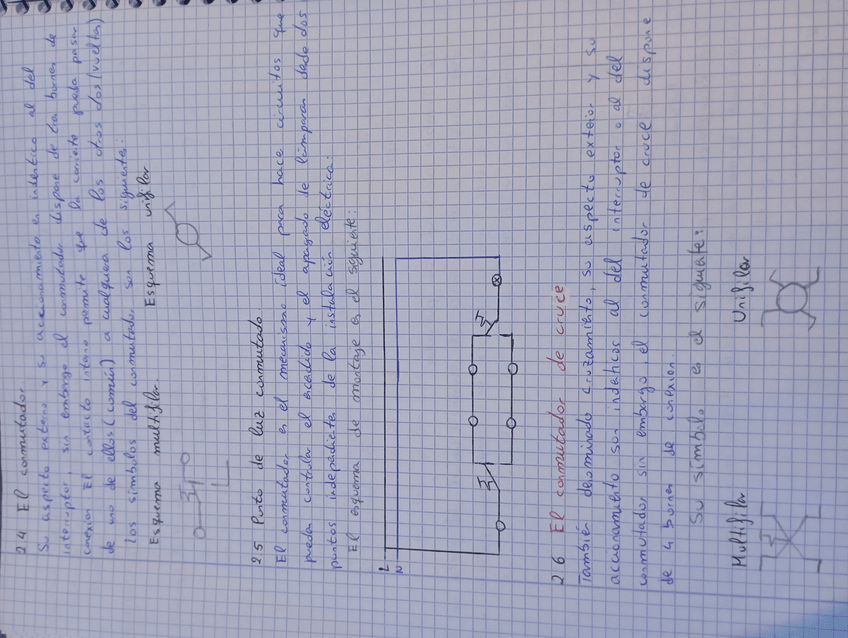 2.4 El conmutador.
Su aspecto externo y su accionamiento es identico al del
interruptor, sin embargo el conmutador dispone de tres bornes de
conexion El contacto interno permite que la corriente pueda pasar
de uno de ellos (común) a cualquiera de los otros dos (vueltas)
Los símbolos del conmutador son los siguientes:
Esquema multifilar Esquema unifilar
2.5 Punto de luz conmutado
El conmutador es el mecanismo ideal para hace circuitos que
puedan controlar el encendido y el apagado de lámparas desde dos
puntos independientes de la instalación eléctrica:
El esquema de montaje es el siguiente:
L
N
2.6 El conmutador de cruce
También denominado cruzamiento, su aspecto exterior y su
accionamiento son indeticos al del interruptor o al del
conmutador, sin embargo el conmutador de cruce dispone
de 4 bornes de conexion.
Su símbolo es el siguiente:
Multifilar Unifilar